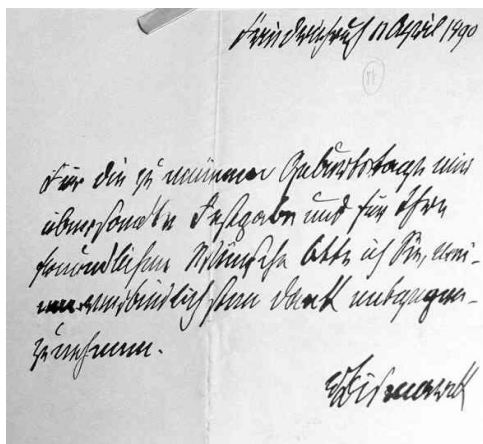 Friedrichsruh 11 April 1890
Für die zu meinem Geburtstage mir
übersandte Festgabe und für Ihre
freundlichen Wünsche bitte ich Sie, mei-
nen verbindlichsten Dank entgegen-
zunehmen.
vBismarck